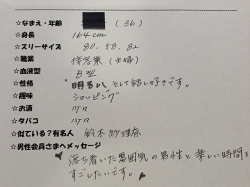 ☆なまえ・年齢 (36)
☆身長 164cm
☆スリーサイズ 80.58.82
☆職業 接客業(主婦)
☆血液型 B型
☆性格 明るく、そして話し好きです。
☆趣味 ショッピング
☆お酒
☆タバコ
☆似ている?有名人 鈴木紗理奈
☆男性会員さまへメッセージ
落ち着いた雰囲気の男性と楽しい時間を
すごしたいです。